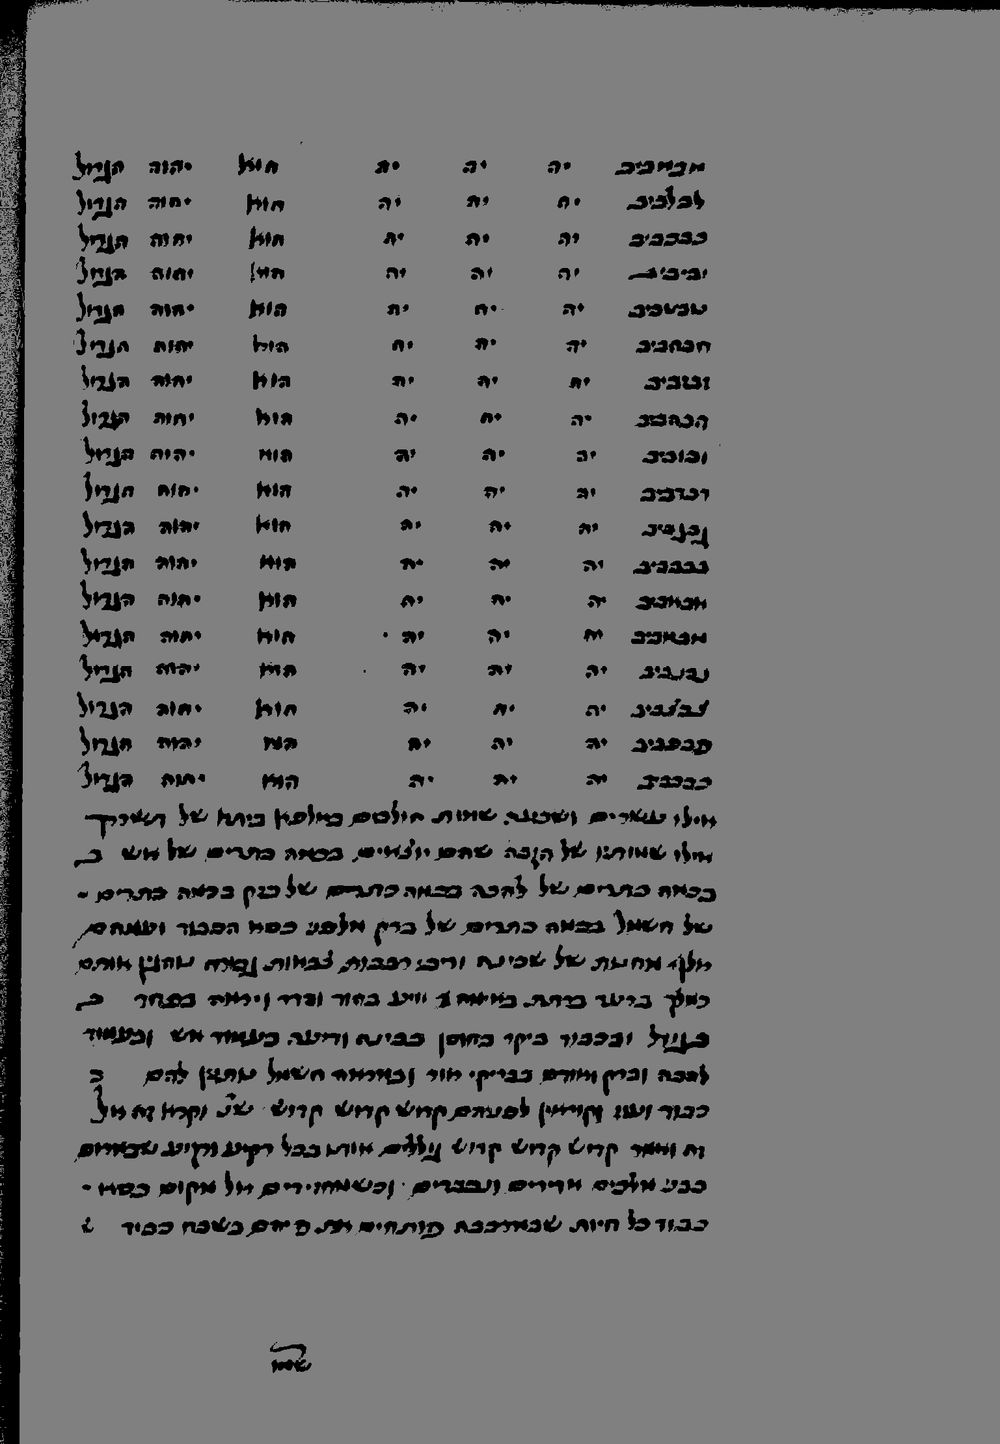 מבמביב יה יה יה הוא יהוה הגדול
לבלביב יה יה יה הוא יהוה הגדול
כבכביב יה יה יה הוא יהוה הגדול
יביביב יה יה יה הוא יהוה הגדול
טבטביב יה יה יה הוא יהוה הגדול
חבחביב יה יה יה הוא יהוה הגדול
זבזביב יה יה יה הוא יהוה הגדול
הבהביב יה יה יה הוא יהוה הגדול
ובוביב יה יה יה הוא יהוה הגדול
דבדביב יה יה יה הוא יהוה הגדול
גבגביב יה יה יה הוא יהוה הגדול
בבבביב יה יה יה הוא יהוה הגדול
אבאביב יה יה יה הוא יהוה הגדול
מבמביב יה יה יה הוא יהוה הגדול
נבנביב יה יה יה הוא יהוה הגדול
צבצביב יה יה יה הוא יהוה הגדול
פבפביב יה יה יה הוא יהוה הגדול
כבכביב יה יה יה הוא יהוה הגדול
אילו עשרים ושבעה שמות חולבים באלפא ביתא של
אילו שמותיו של הקבה שהם יוצאים בכמה כתרים של אש ב
בכמה כתרים של להבה בכמה כתרים של בזק בכמה כתרים
של חשמל בכמה כתרים של ברק מלפני כסא הכבוד ועמהם
אלף מחנות של שכינה וריבי רבבות צבאות אותם
כמלך ברעד ברתת באימה ויזיע בהוד והדר ויראה בפחד ב
בגודל ובכבוד ביקר בחוסן בבינה ודיעה בעמוד אש ובעמוד
להבה וברק אורם כבריקי אור ובמראה חשמל להם ב
כבוד ועוז ועונין לפניהם קדוש קדוש קדוש שנ וקרא זה אל
זה ואמר קדוש קדוש קדוש גוללים אותם בכל רקיע ורקיע שבמרום
כבני מלכים אדירים ונכבדים וכשמחזירים אל מקום כסא
כבוד כל חיות שבמרכבה פותחים את פיהם בשבח כבוד
שמו